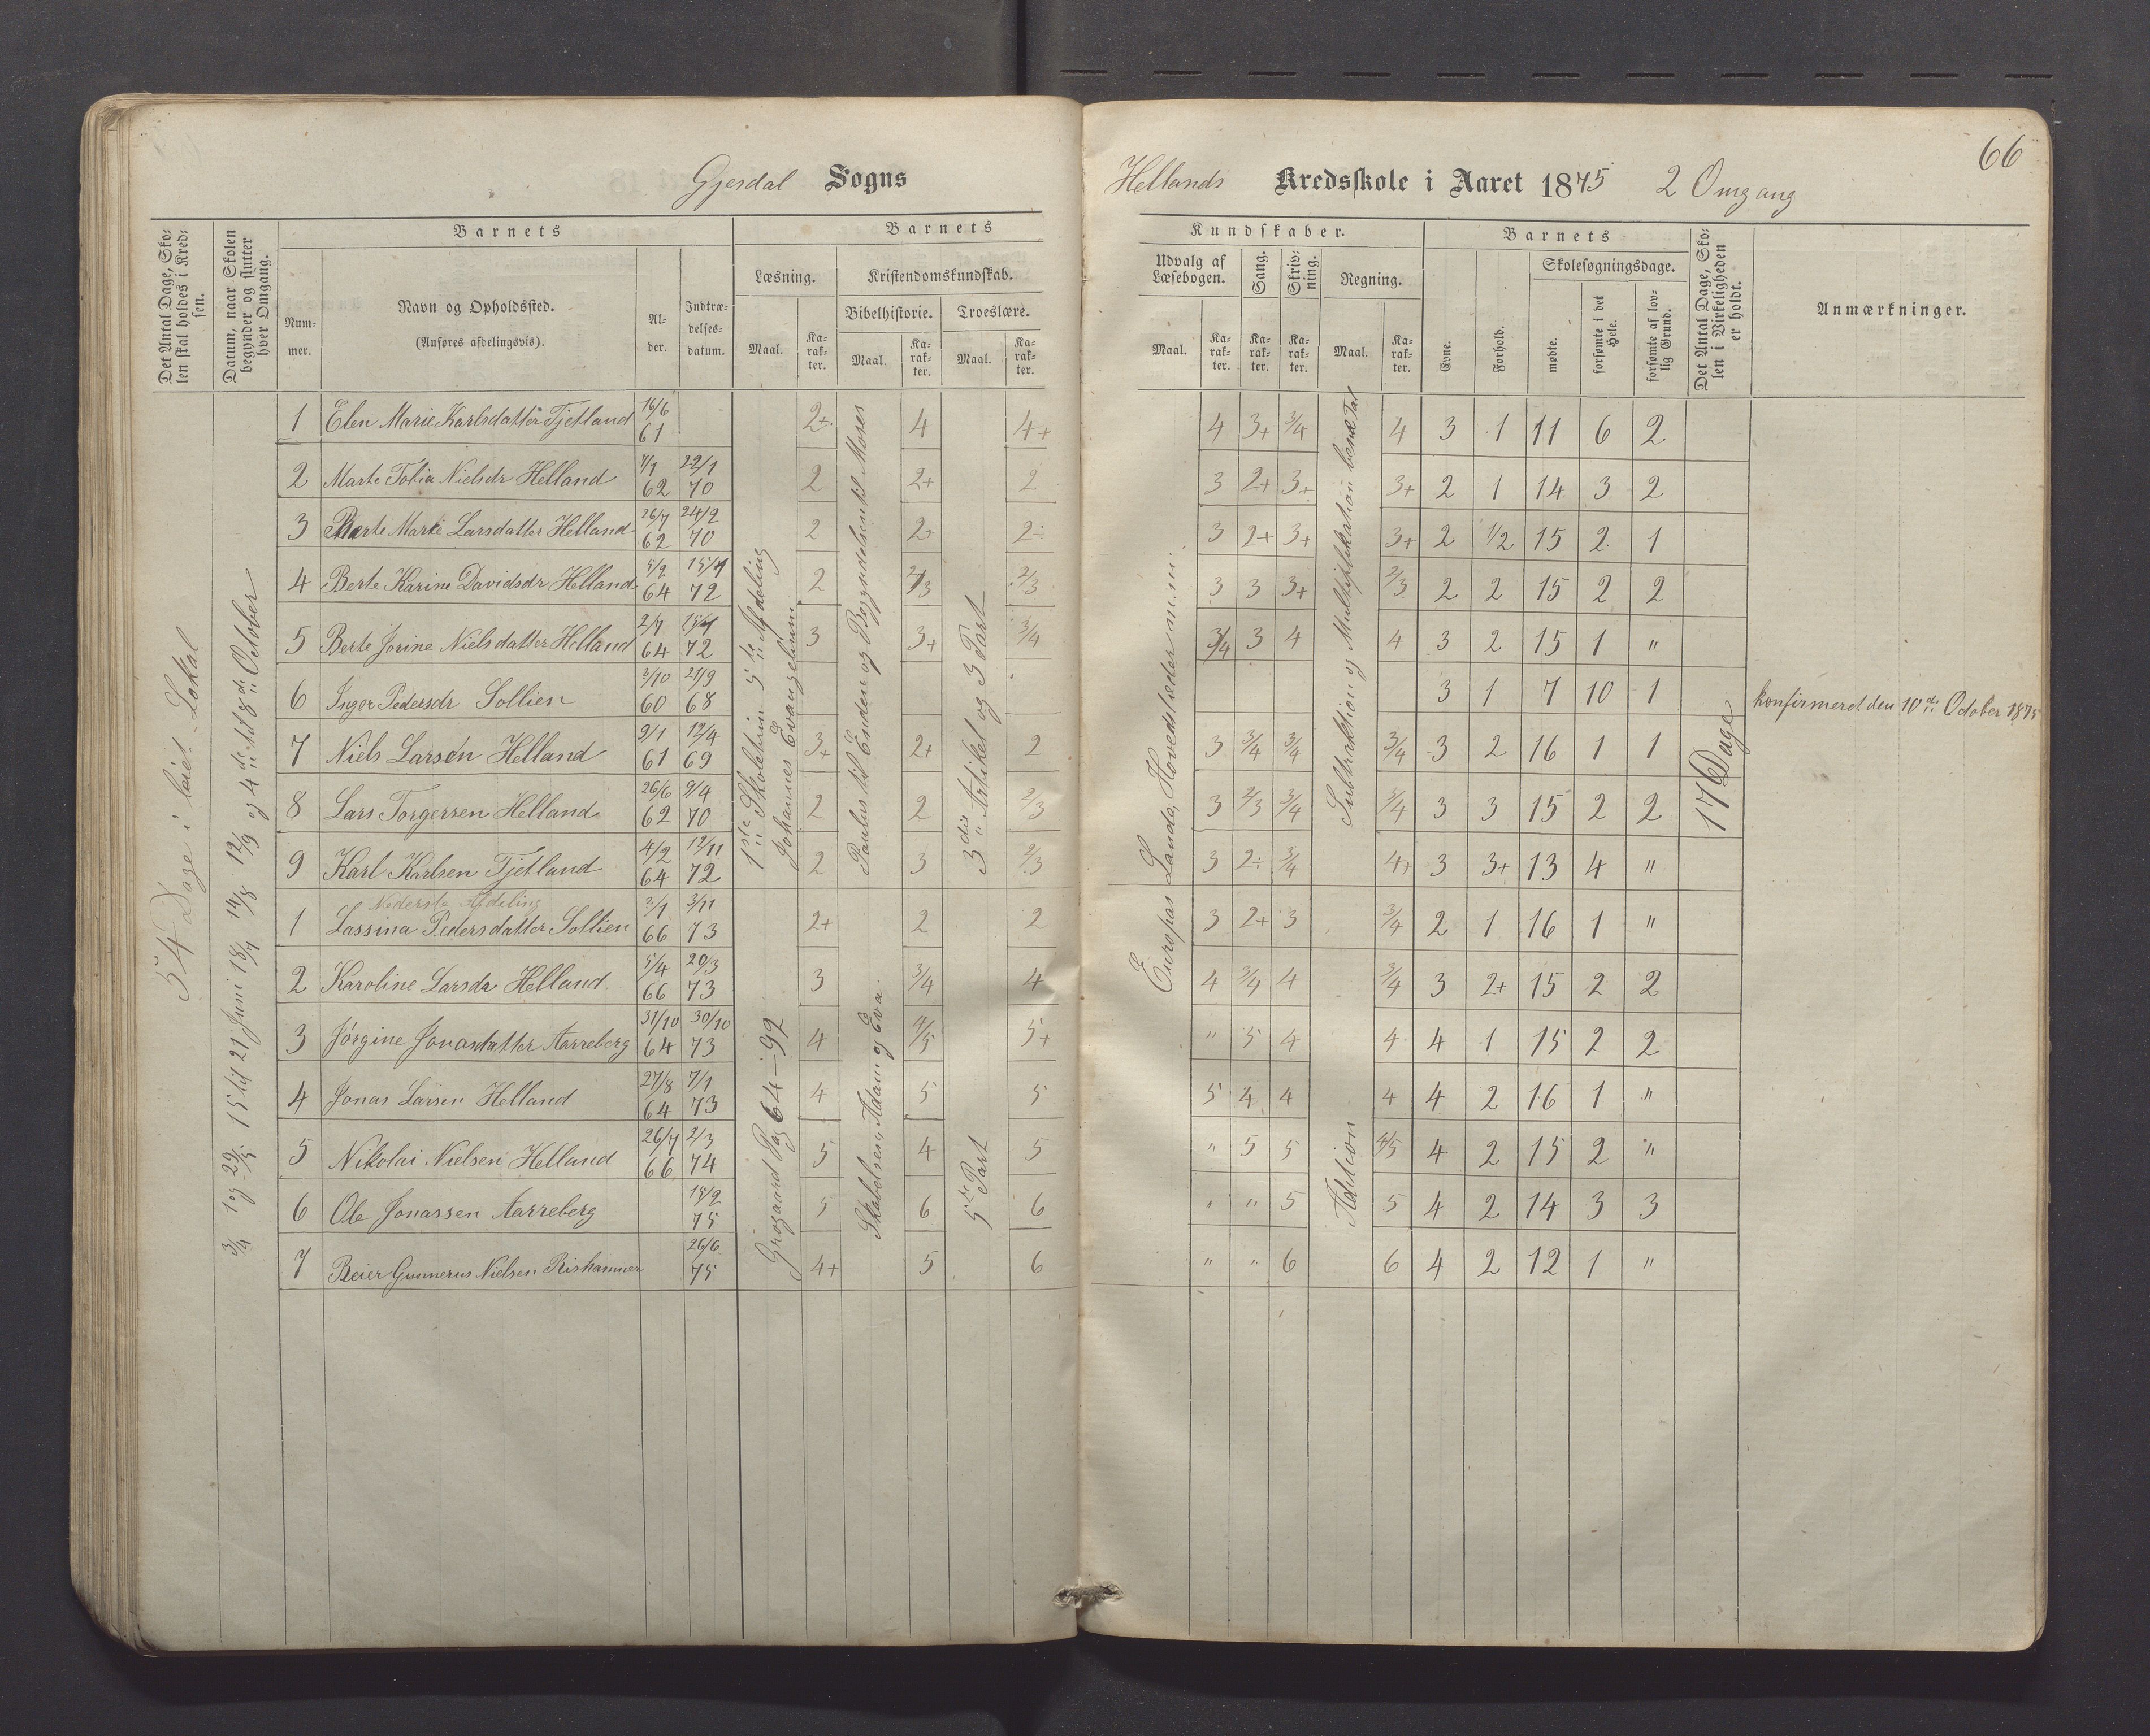 66
Gjesdal Sogns Hellands Kredsskole i Aaret 1875 2 Omgang
Det Antal Dage, Skolen skal holdes i Kredsen.
Datum, naar Skolen begynder og slutter hver Omgang.
Barnets
Barnets
Kundskaber.
Barnets
Det Antal Dage, Skolen i Virkeligheden er holdt.
Anmærkninger.
Nummer.
Navn og Opholdssted.
(Anføres afdelingsvis).
Alder.
Indtrædelsesdatum.
Læsning.
Kristendomskundskab.
Bibelhistorie.
Troeslære.
Udvalg af Læsebogen.
Sang.
Skrivning.
Regning.
Evne.
Forhold.
Skolesøgningsdage.
mødte.
forsømte i det Hele.
forsømte af lovlig Grund.
Maal. Karakter. Maal. Karakter. Maal. Karakter. Maal. Karakter. Karakter. Karakter. Maal. Karakter.
54 Dage i leiet Lokal
3/4 1 og 29/5 15 til 21 Juni 18/7 14/8 12/9 og 4de til 8de October
1 Elen Marie Karlsdatter Tjetland 16/6 61 2+ 4 4+ 4 3+ 3/4 4 3 1 11 6 2
2 Marte Tolia Nielsdr Helland 7/1 62 22/1 70 2 2+ 2 3 2+ 3+ 3+ 2 1 14 3 2
3 Berte Marie Larsdatter Helland 26/7 62 24/2 70 2 2+ 2÷ 3 2+ 3+ 3+ 2 1/2 15 2 1
4 Berte Karine Davidsdr Helland 5/2 64 15/4 72 2 2/3 2/3 3 3 3+ 2/3 2 2 15 2 2
5 Berte Jorine Nielsdatter Helland 2/7 64 15/4 72 3 3+ 3/4 3/4 3 4 4 3 2 15 1 "
6 Inger Pedersdr Sollien 3/10 60 21/9 68 3 1 7 10 1 konfirmeret den 10de October 1875
7 Niels Larsen Helland 9/1 61 12/4 69 3+ 2+ 2 3 3/4 3/4 3/4 3 2 16 1 1
8 Lars Torgersen Helland 26/6 62 9/4 70 2 2 2/3 3 2/3 3/4 3/4 3 3 15 2 2
9 Karl Karlsen Tjetland 4/2 64 12/11 72 2 3 2/3 3 2÷ 3/4 4+ 3 3+ 13 4 "
Nederste Afdeling
1 Lassina Pedersdatter Sollien 3/1 66 3/11 73 2+ 2 2 3 2+ 3 3/4 2 1 16 1 "
2 Karoline Larsdr Helland 5/4 66 20/3 73 3 3/4 4 4 3/4 4 3/4 3 2+ 15 2 2
3 Jørgine Jonasdatter Aarreberg 31/10 64 30/10 73 4 4/5 5+ " 5 4 4 4 1 15 2 2
4 Jonas Larsen Helland 27/8 64 7/1 73 4 5 5 5 4 4 4 4 2 16 1 "
5 Nikolai Nielsen Helland 26/7 66 2/3 74 5 4 5 " 5 5 4/5 4 2 15 2 "
6 Ole Jonassen Aarreberg 15/2 75 5 6 6 " " 5 5 4 2 14 3 3
7 Reier Gunnerus Nielsen Rishammer 26/6 75 4+ 5 6 " " 6 6 4 2 12 1 "
1ste Skoletrin 5te Afdeling
Johannes Evangelium
Grøgaard Pag 64–92
Paulus til Enden og Begyndelsen til Moses
Skabelsen, Adam og Eva.
3die Artikel og 3 Part
5te Part
Europas Lande, Hovedstæder m.m.
Subtraktion og Multiplikation benæ Tal
Adition
17 Dage